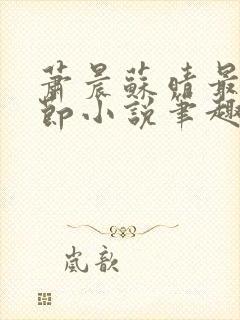 蕭晨蘇晴最
節小說筆趣
嵐歆